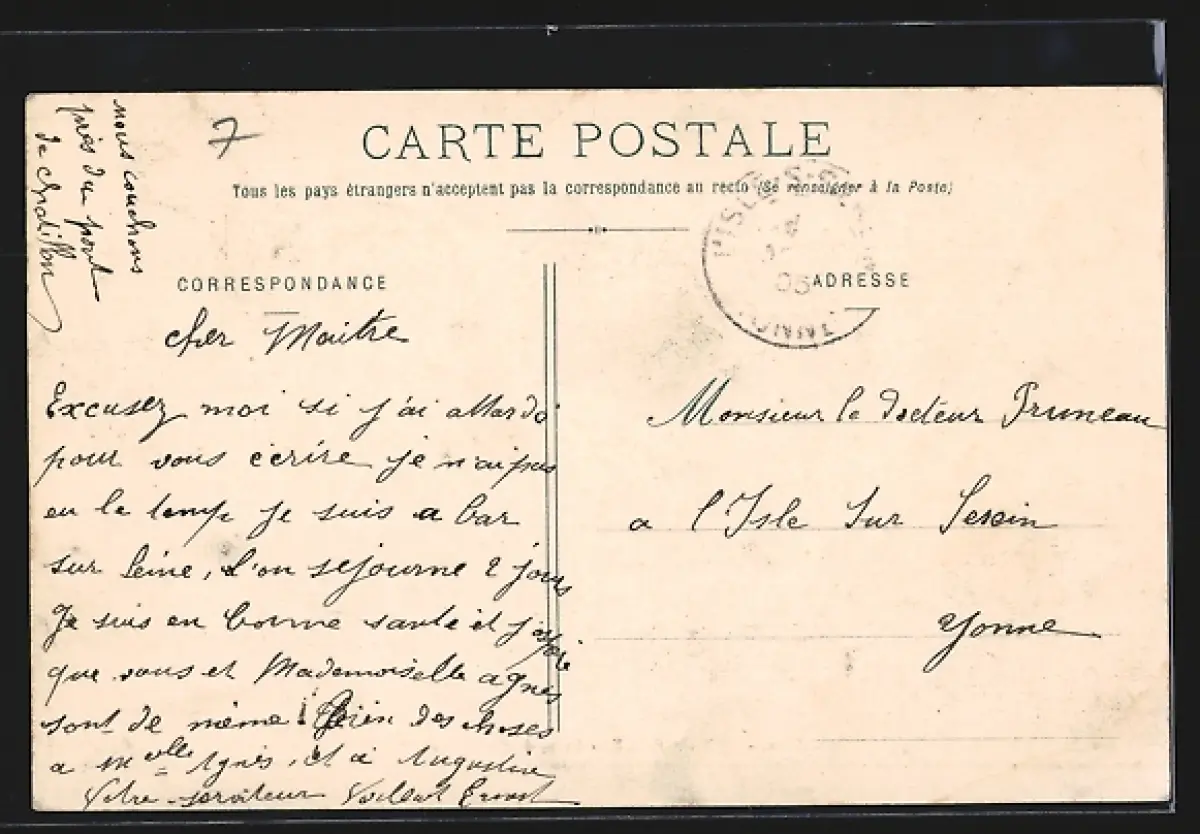 nous couchons
près du pont
de chatillon
7
CARTE POSTALE
Tous les pays étrangers n'acceptent pas la correspondance au recto (Se renseigner à la Poste)
CORRESPONDANCE
ADRESSE
cher Maitre
Excusez moi si j'ai attardé
pour vous écrire je n'ai pas
eu le temp je suis a bar
sur seine, l'on sejourne 2 jours
Je suis en bonne santé et j'espère
que vous et Mademoiselle agnes
sont de même ! Bien des choses
a Melle Agnès, et à Augustine
Votre serviteur Ernest
Monsieur le Docteur
a l'Isle sur Serein
Yonne
L'ISLE-S-
05